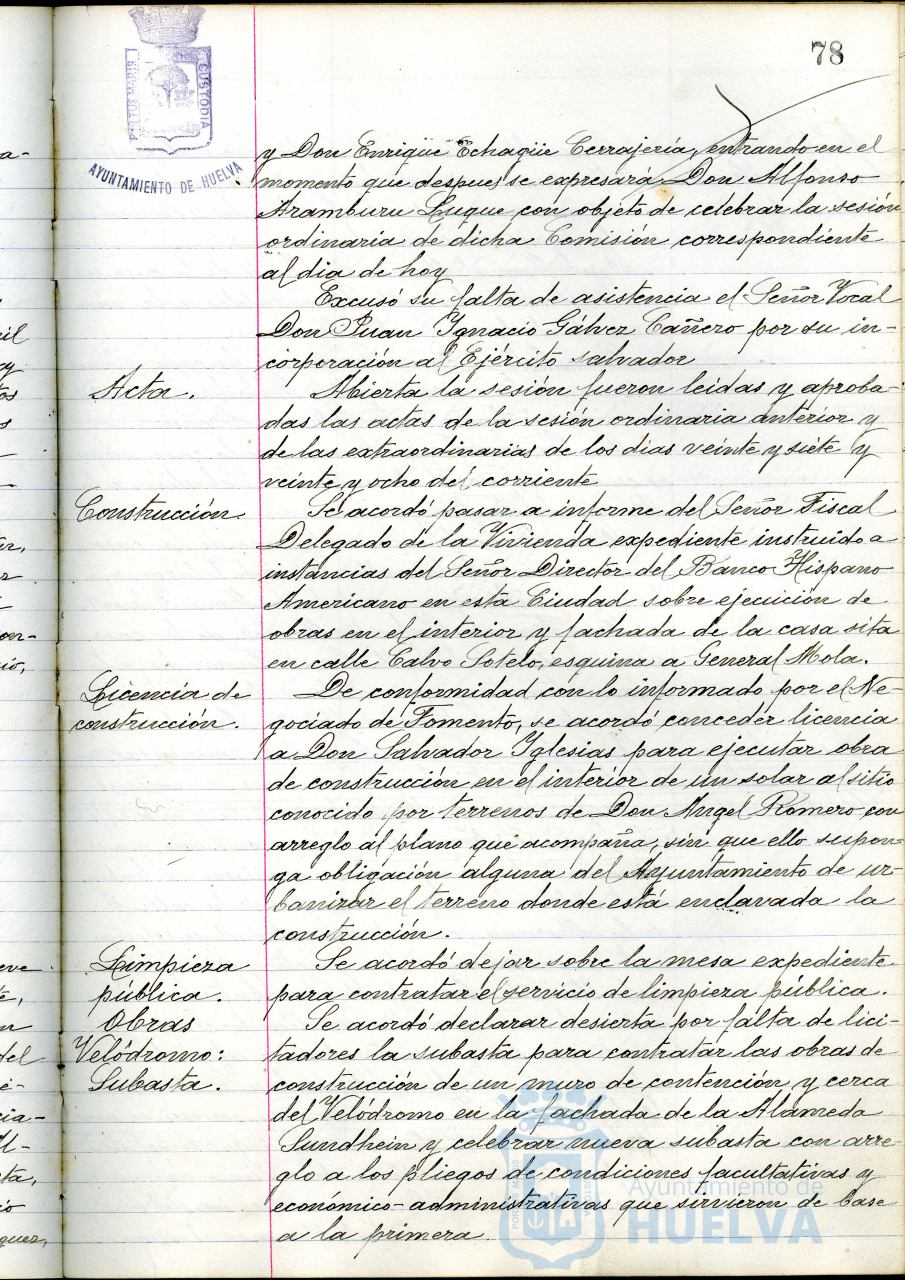 78
PORTUS MARIS
CUSTODIA
AYUNTAMIENTO DE HUELVA
y Don Enrique Echagüe Cerrajería, entrando en el
momento que despues se expresará Don Alfonso
Aramburu Luque con objeto de celebrar la sesión
ordinaria de dicha Comisión correspondiente
al dia de hoy
Excusó su falta de asistencia el Señor Vocal
Don Juan Ygnacio Gálvez Cañero por su in-
corporación al Ejército salvador
Acta.
Abierta la sesión fueron leidas y aproba-
das las actas de la sesión ordinaria anterior y
de las extraordinarias de los dias veinte y siete y
veinte y ocho del corriente
Construcción.
Se acordó pasar a informe del Señor Fiscal
Delegado de la Vivienda expediente instruido a
instancias del Señor Director del Banco Hispano
Americano en está Ciudad sobre ejecución de
obras en el interior y fachada de la casa sita
en calle Calvo Sotelo, esquina a General Mola.
Licencia de
construcción.
De conformidad con lo informado por el Ne-
gociado de Fomento, se acordó conceder licencia
a Don Salvador Yglesias para ejecutar obra
de construcción en el interior de un solar al sitio
conocido por terrenos de Don Angel Romero con
arreglo al plano que acompaña, sin que ello supon-
ga obligación alguna del Ayuntamiento de ur-
banizar el terreno donde está enclavada la
construcción.
Limpieza
pública.
Se acordó dejar sobre la mesa expediente
para contratar el servicio de limpieza pública.
Obras
Velódromo:
Subasta.
Se acordó declarar desierta por falta de lici-
tadores la subasta para contratar las obras de
construcción de un muro de contención y cerca
del Velódromo en la fachada de la Alameda
Sundhein y celebrar nueva subasta con arre-
glo a los pliegos de condiciones facultativas y
económico-administrativas que sirvieron de base
a la primera
Ayuntamiento de
HUELVA